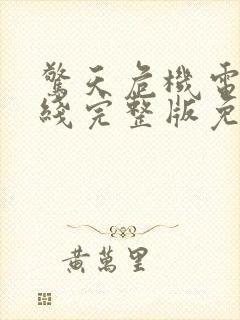 驚天危機電
綫完整版免
黃萬里